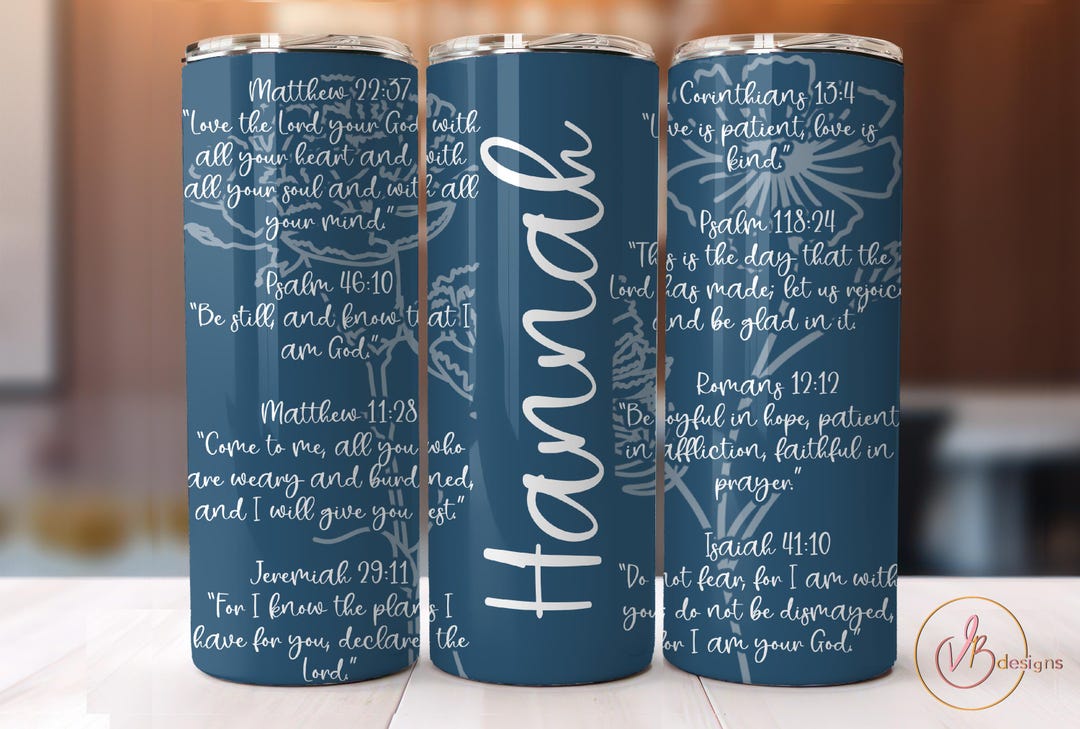 Matthew 22:37
"Love the Lord your God with
all your heart and with
all your soul and with all
your mind."
Psalm 46:10
"Be still, and know that I
am God."
Matthew 11:28
"Come to me, all you who
are weary and burdened,
and I will give you rest."
Jeremiah 29:11
"For I know the plans I
have for you, declares the
Lord."
Hannah
Corinthians 13:4
"Love is patient, love is
kind."
Psalm 118:24
"This is the day that the
Lord has made; let us rejoice
and be glad in it."
Romans 12:12
"Be joyful in hope, patient
in affliction, faithful in
prayer."
Isaiah 41:10
"Do not fear, for I am with
you; do not be dismayed,
for I am your God."
designs